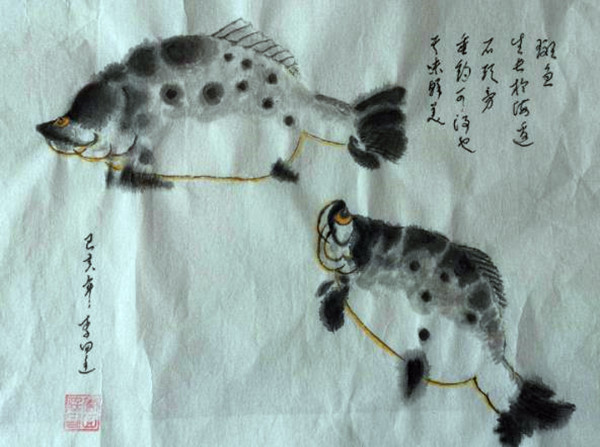 斑鱼
生长于海边
石头旁
垂钓可得也
其味鲜美
己亥年 李